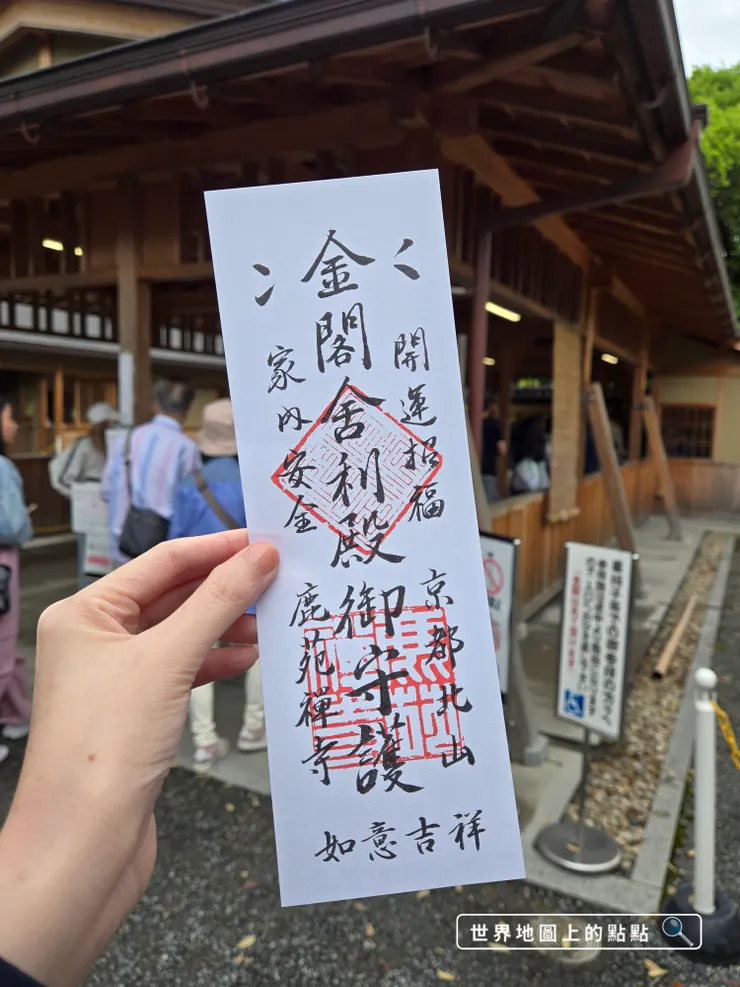 金閣舎利殿御守護
開運招福
家内安全
京都北山
鹿苑禅寺
如意吉祥
世界地圖上的點點